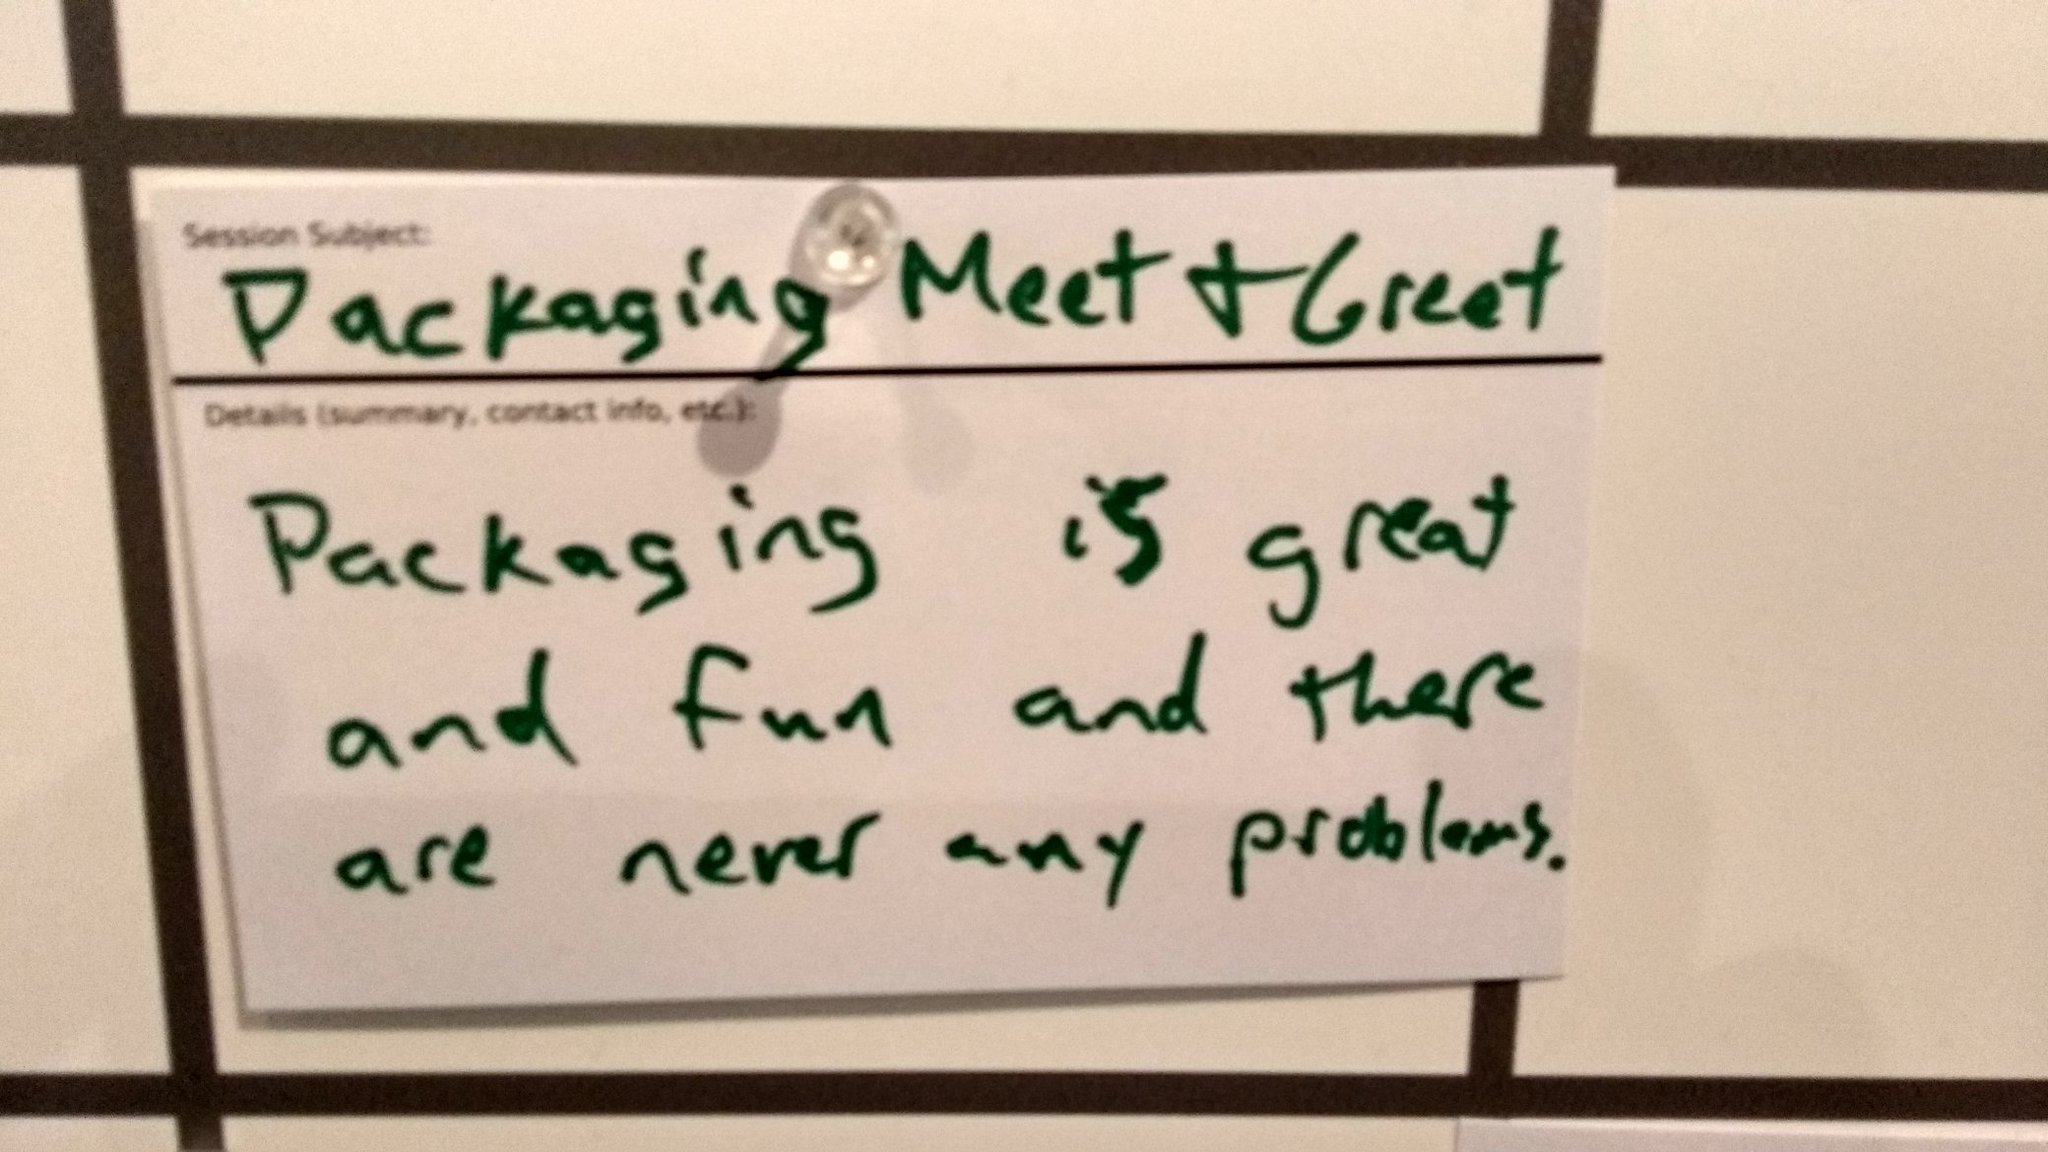 Session Subject:
Packaging Meet + Greet
Details (summary, contact info, etc.):
Packaging is great
and fun and there
are never any problems.